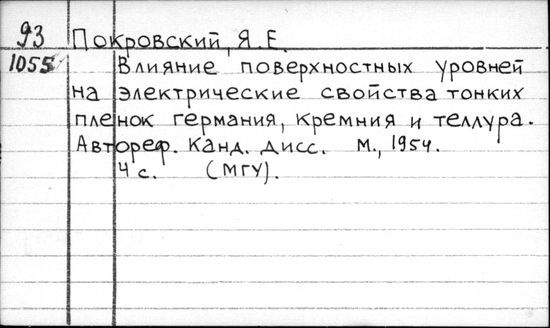 93 Покровский, Я.Е.
1055 Влияние поверхностных уровней
на электрические свойства тонких
пленок германия, кремния и теллура.
Автореф. канд. дисс. М., 1954.
4 с. (МГУ).